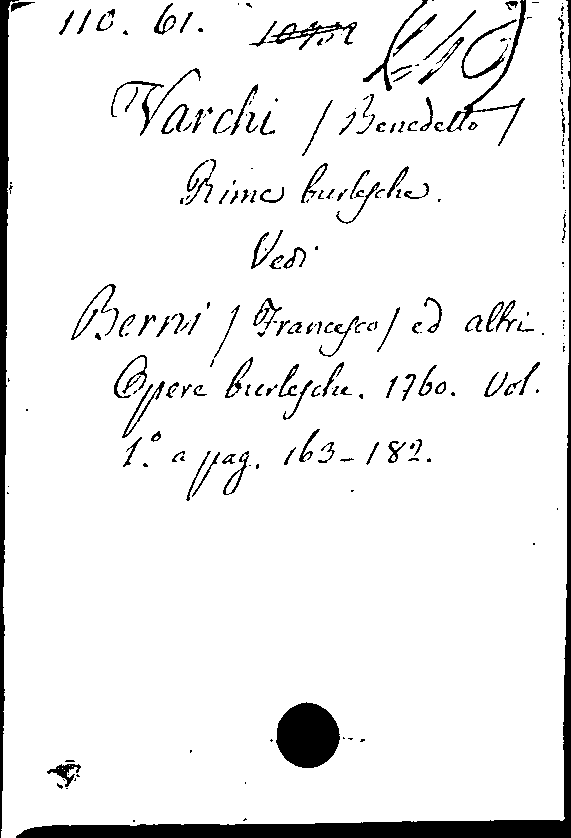 110. 61.
Varchi / Benedetto /
Rime burlesche.
Vedi
Berni / Francesco / ed altri
Opere burlesche. 1760. Vol.
1.º a pag. 163-182.